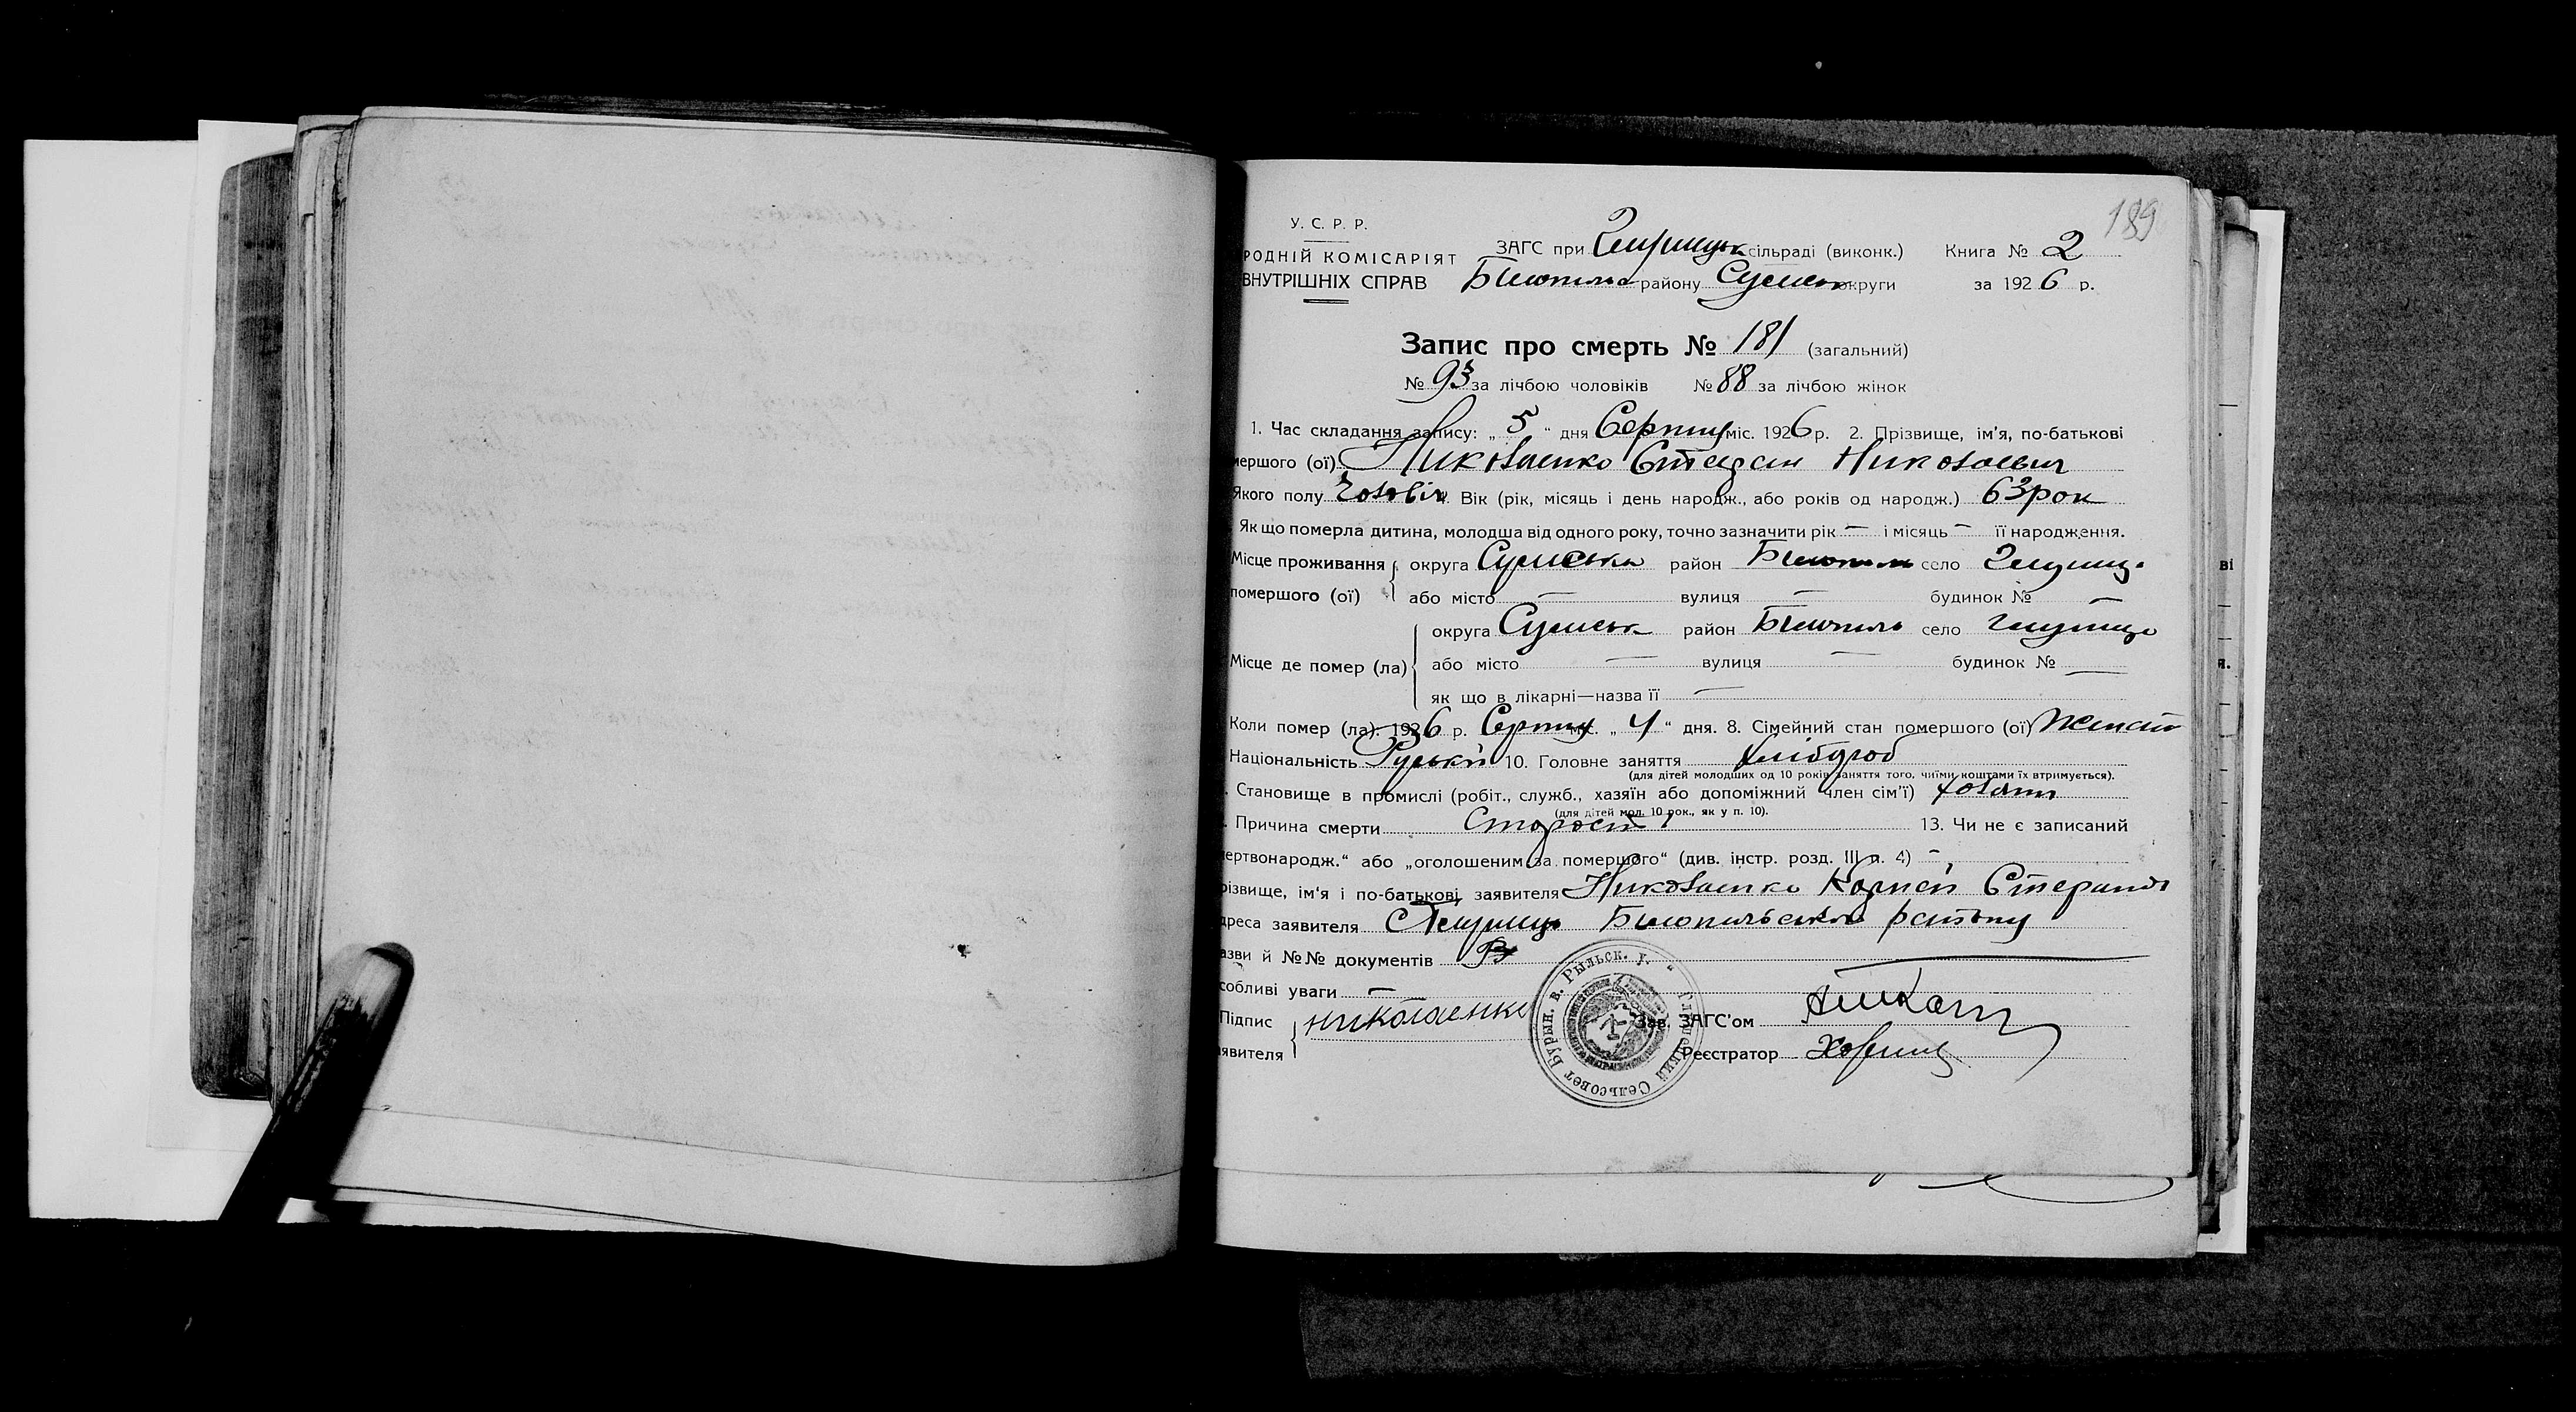 189
У. С. Р. Р.
РОДНІЙ КОМІСАРІЯТ
ВНУТРІШНІХ СПРАВ
ЗАГС при сільраді (виконк.) Книга № 2
району округи за 1926 р.
Запис про смерть № 181 (загальний)
№ 93 за лічбою чоловіків № 88 за лічбою жінок
1. Час складання запису: „ 5 “ дня Серпня міс. 1926 р. 2. Прізвище, ім’я, по-батькові
мершого (ої) Николаенко Стефан Николаевич
Якого полу Чоловіч Вік (рік, місяць і день народж., або років од народж.) 63 рок
Як що померла дитина, молодша від одного року, точно зазначити рік — і місяць — її народження.
Місце проживання округа Сумська район село
помершого (ої) або місто — вулиця — будинок № —
округа Сумськ район село
Місце де помер (ла) або місто — вулиця — будинок № —
як що в лікарні—назва її —
Коли помер (ла). 1926 р. Серпня міс. „ 4 “ дня. 8. Сімейний стан помершого (ої)
Національність Руський 10. Головне заняття хлібороб
(для дітей молодших од 10 років заняття того, чиїми коштами їх втримується).
Становище в промислі (робіт., служб., хазяїн або допоміжний член сім’ї)
(для дітей мол. 10 рок., як у п. 10).
Причина смерти Старост 13. Чи не є записаний
ертвонародж.“ або „оголошеним за помершого“ (див. інстр. розд. III п. 4) —
різвище, ім’я і по-батькові заявителя Николаенко Корней
дреса заявителя района
азви й №№ документів
собливі уваги —
Підпис
явителя
николаенко
Глушецкий Сельсовет Бурын. в. Рыльск. у.
Зав. ЗАГС’ом
Реєстратор
ві
я.